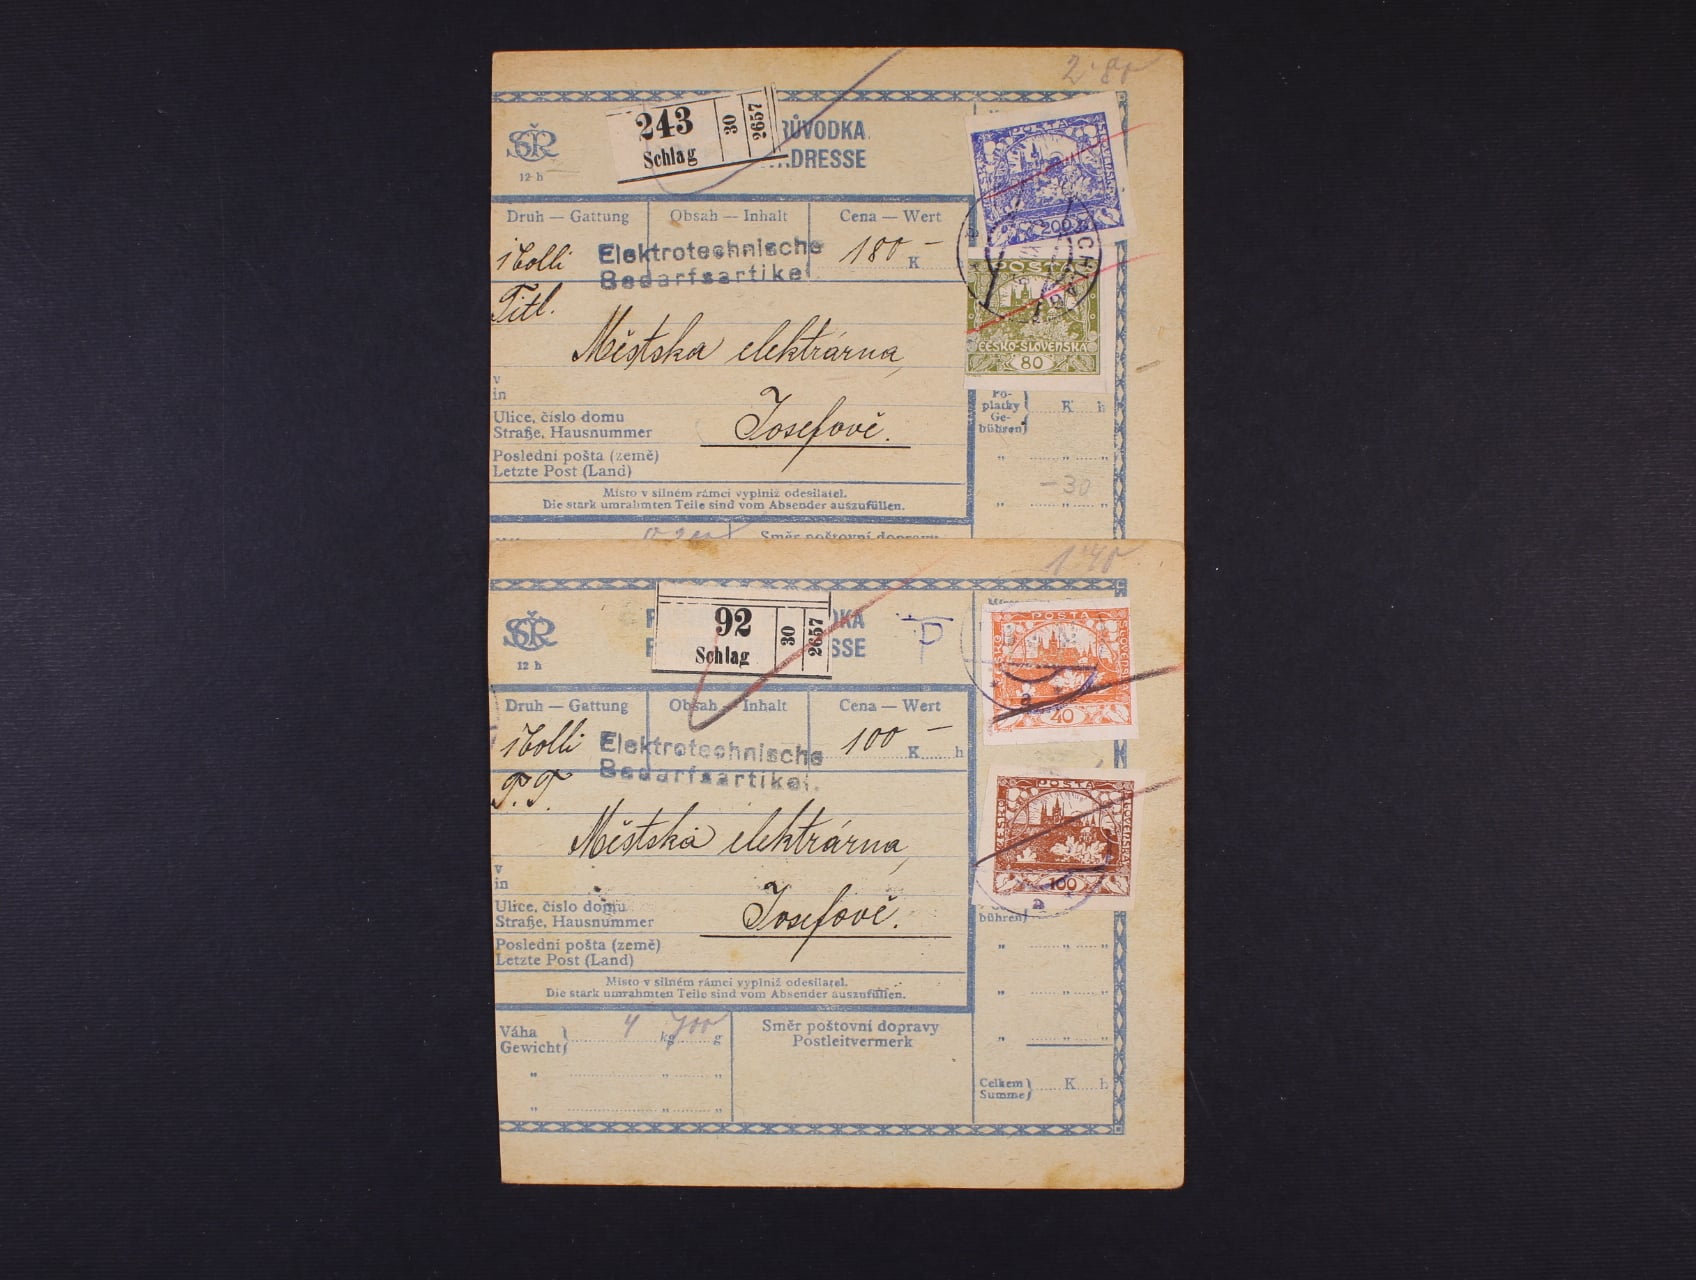 2·80
243
Schlag
30
2657
RŮVODKA.
ADRESSE
SČR
12 h
POSTA
SLOVENSKÁ
200
Druh — Gattung
Obsah — Inhalt
Cena — Wert
1 Colli
Elektrotechnische
Bedarfsartikel.
180 —
K
SCHLAG
Titl.
POSTA
ČESKO-SLOVENSKÁ
80
Městska elektrárna,
v
in
Ulice, číslo domu
Straße, Hausnummer
Josefově.
Poslední pošta (země)
Letzte Post (Land)
Po-
platky
Ge-
bühren
K h
— 30
Místo v silném rámci vyplniž odesílatel.
Die stark umrahmten Teile sind vom Absender auszufüllen.
Směr poštovní dopravy
1·40
92
Schlag
30
2657
DKA
SSE
SČR
12 h
POSTA
SLOVENSKÁ
40
a
Druh — Gattung
Obsah — Inhalt
Cena — Wert
1 Colli
Elektrotechnische
Bedarfsartikel.
100 —
K h
T. T.
POSTA
ČESKO
SLOVENSKÁ
100
a
Městská elektrárna,
v
in
Ulice, číslo domu
Straße, Hausnummer
Josefově.
bühren
Poslední pošta (země)
Letzte Post (Land)
Místo v silném rámci vyplniž odesílatel.
Die stark umrahmten Teile sind vom Absender auszufüllen.
Váha
Gewicht
4 kg 700 g
Směr poštovní dopravy
Postleitvermerk
Celkem
Summe
K h